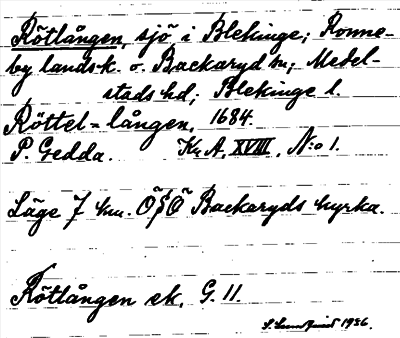 Rötlången, sjö i Blekinge; Ronne-
by landsk. o. Backaryd sn; Medel-
stads hd; Blekinge l.
Röttel-lången, 1684.
P. Gedda. Kr. A, XVIII, N:o 1.
Läge 7 km. ÖSÖ Backaryds kyrka.
Rötlången ek. G. 11.
S. Lundquist 1926.